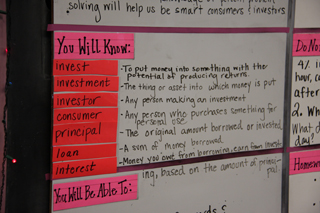 solving will help us be smart consumers & investors
You Will Know:
invest -To put money into something with the potential of producing returns.
investment -The thing or asset into which money is put
investor -Any person making an investment
consumer -Any person who purchases something for personal use
principal -The original amount borrowed or invested
loan -A sum of money borrowed
interest -Money you owe from borrowing, earn from invest
ing, based on the amount of princi-
pal
You Will Be Able To:
Do No
4/
in
hour,
after
2. Wh
What d
day?
Homew